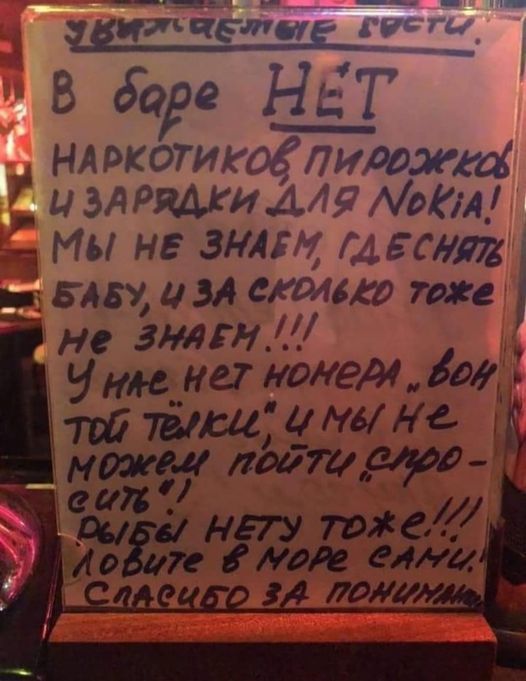 УВАЖАЕМЫЕ ГОСТИ.
В баре НЕТ
НАРКОТИКОВ, ПИРОЖКОВ
И ЗАРЯДКИ ДЛЯ NOKIA!
МЫ НЕ ЗНАЕМ, ГДЕ СНЯТЬ
БАБУ, И ЗА СКОЛЬКО ТОЖЕ
НЕ ЗНАЕМ!!!
У НАС НЕТ НОМЕРА „ВОН
ТОЙ ТЁЛКИ", И МЫ НЕ
МОЖЕМ ПОЙТИ „СПРО-
СИТЬ"!
РЫБЫ НЕТУ ТОЖЕ!!!
ЛОВИТЕ В МОРЕ САМИ!
СПАСИБО ЗА ПОНИМАНИЕ